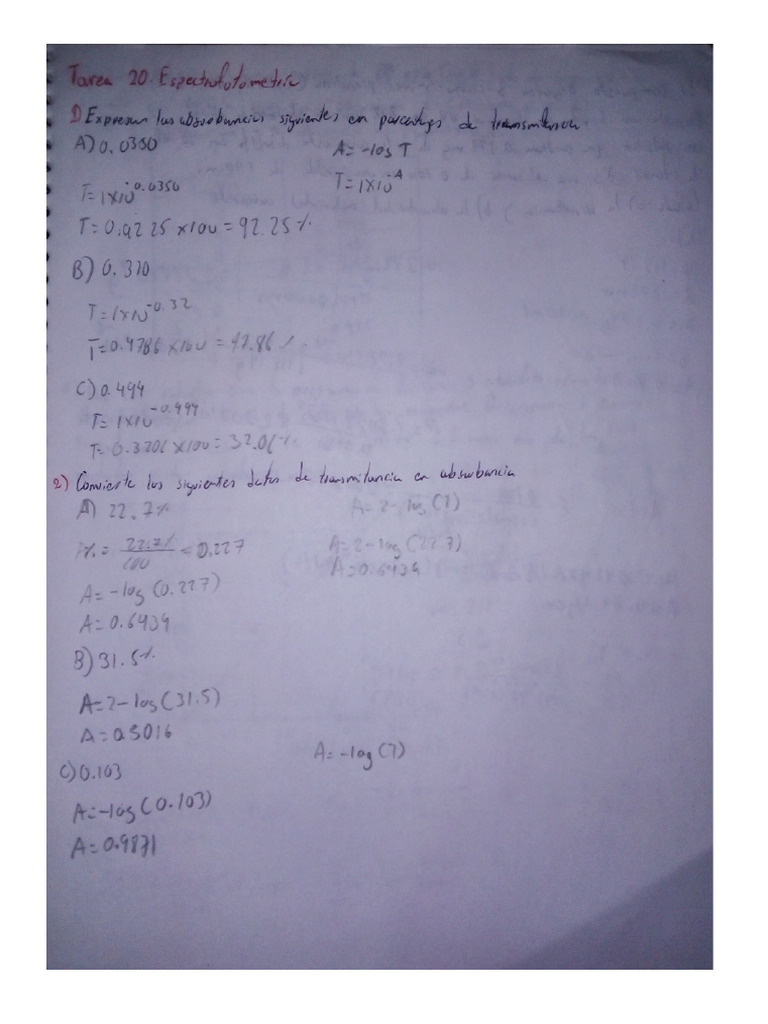 Tarea 20. Espectrofotometría
1) Expresar las absorbancias siguientes en porcentajes de transmitancia.
A) 0.0350 A = -log T
T = 1x10^-0.0350 T = 1x10^-A
T = 0.9225 x100 = 92.25%
B) 0.320
T = 1x10^-0.32
T = 0.4786 x100 = 47.86%
C) 0.494
T = 1x10^-0.494
T = 0.3206 x100 = 32.06%
2) Convierte los siguientes datos de transmitancia en absorbancia
A) 22.7% A = 2 - log (T)
% = 22.7% / 100 = 0.227 A = 2 - log (22.7)
A = -log (0.227) A = 0.6439
A = 0.6439
B) 31.5%
A = 2 - log (31.5)
A = 0.5016
A = -log (T)
C) 0.103
A = -log (0.103)
A = 0.9871